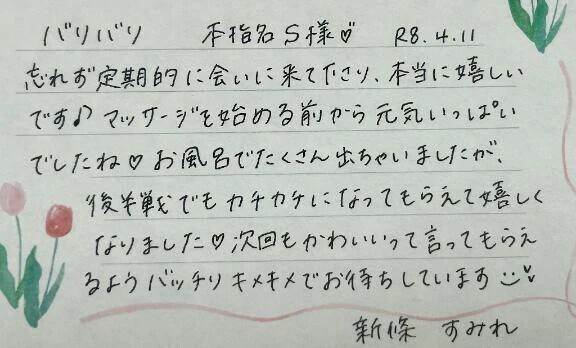 バリバリ 本指名S様♡ R8.4.11
忘れず定期的に会いに来て下さり、本当に嬉しい
です♪ マッサージを始める前から元気いっぱい
でしたね♡ お風呂でたくさん出ちゃいましたが、
後半戦でもカチカチになってもらえて嬉しく
なりました♡ 次回もかわいいって言ってもらえ
るようバッチリキメキメでお待ちしています
新條 すみれ